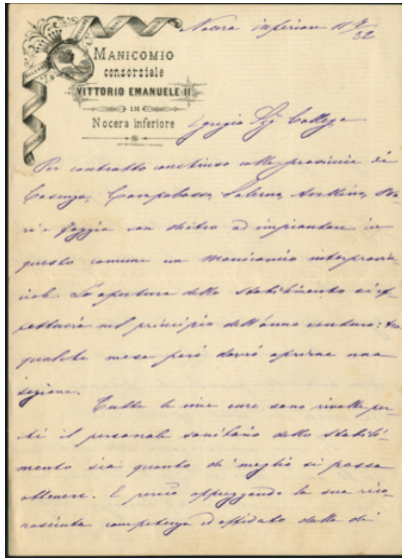 Nocera inferiore 11 5/82
MANICOMIO
consorziale
VITTORIO EMANUELE II
IN
Nocera inferiore
Egregio Sig. Collega
Per contratto conchiuso colle provincie di
Cosenza, Campobasso, Salerno, Avellino, Ba
ri e Foggia son ad impiantare in
questo comune un manicomio interprovin
ciale. La apertura dello stabilimento si ef
fettuerà nel principio dell'anno venturo: tra
qualche mese però dovrò aprirne una
sezione.
Tutte le mie cure sono rivolte per
ché il personale sanitario dello stabili
mento sia quanto di meglio si possa
ottenere. E perciò apprezzando la sua rico
nosciuta competenza ed affidato dalle di